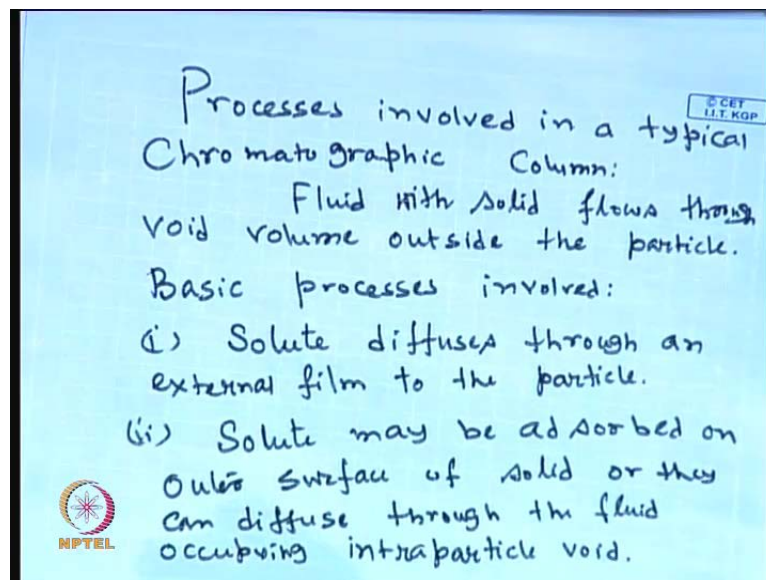 Processes involved in a typical
© CET
I.I.T. KGP
Chromatographic Column:
Fluid with solid flows through
void volume outside the particle.
Basic processes involved:
(i) Solute diffuses through an
external film to the particle.
(ii) Solute may be adsorbed on
outer surface of solid or they
can diffuse through the fluid
occupying intraparticle void.
NPTEL